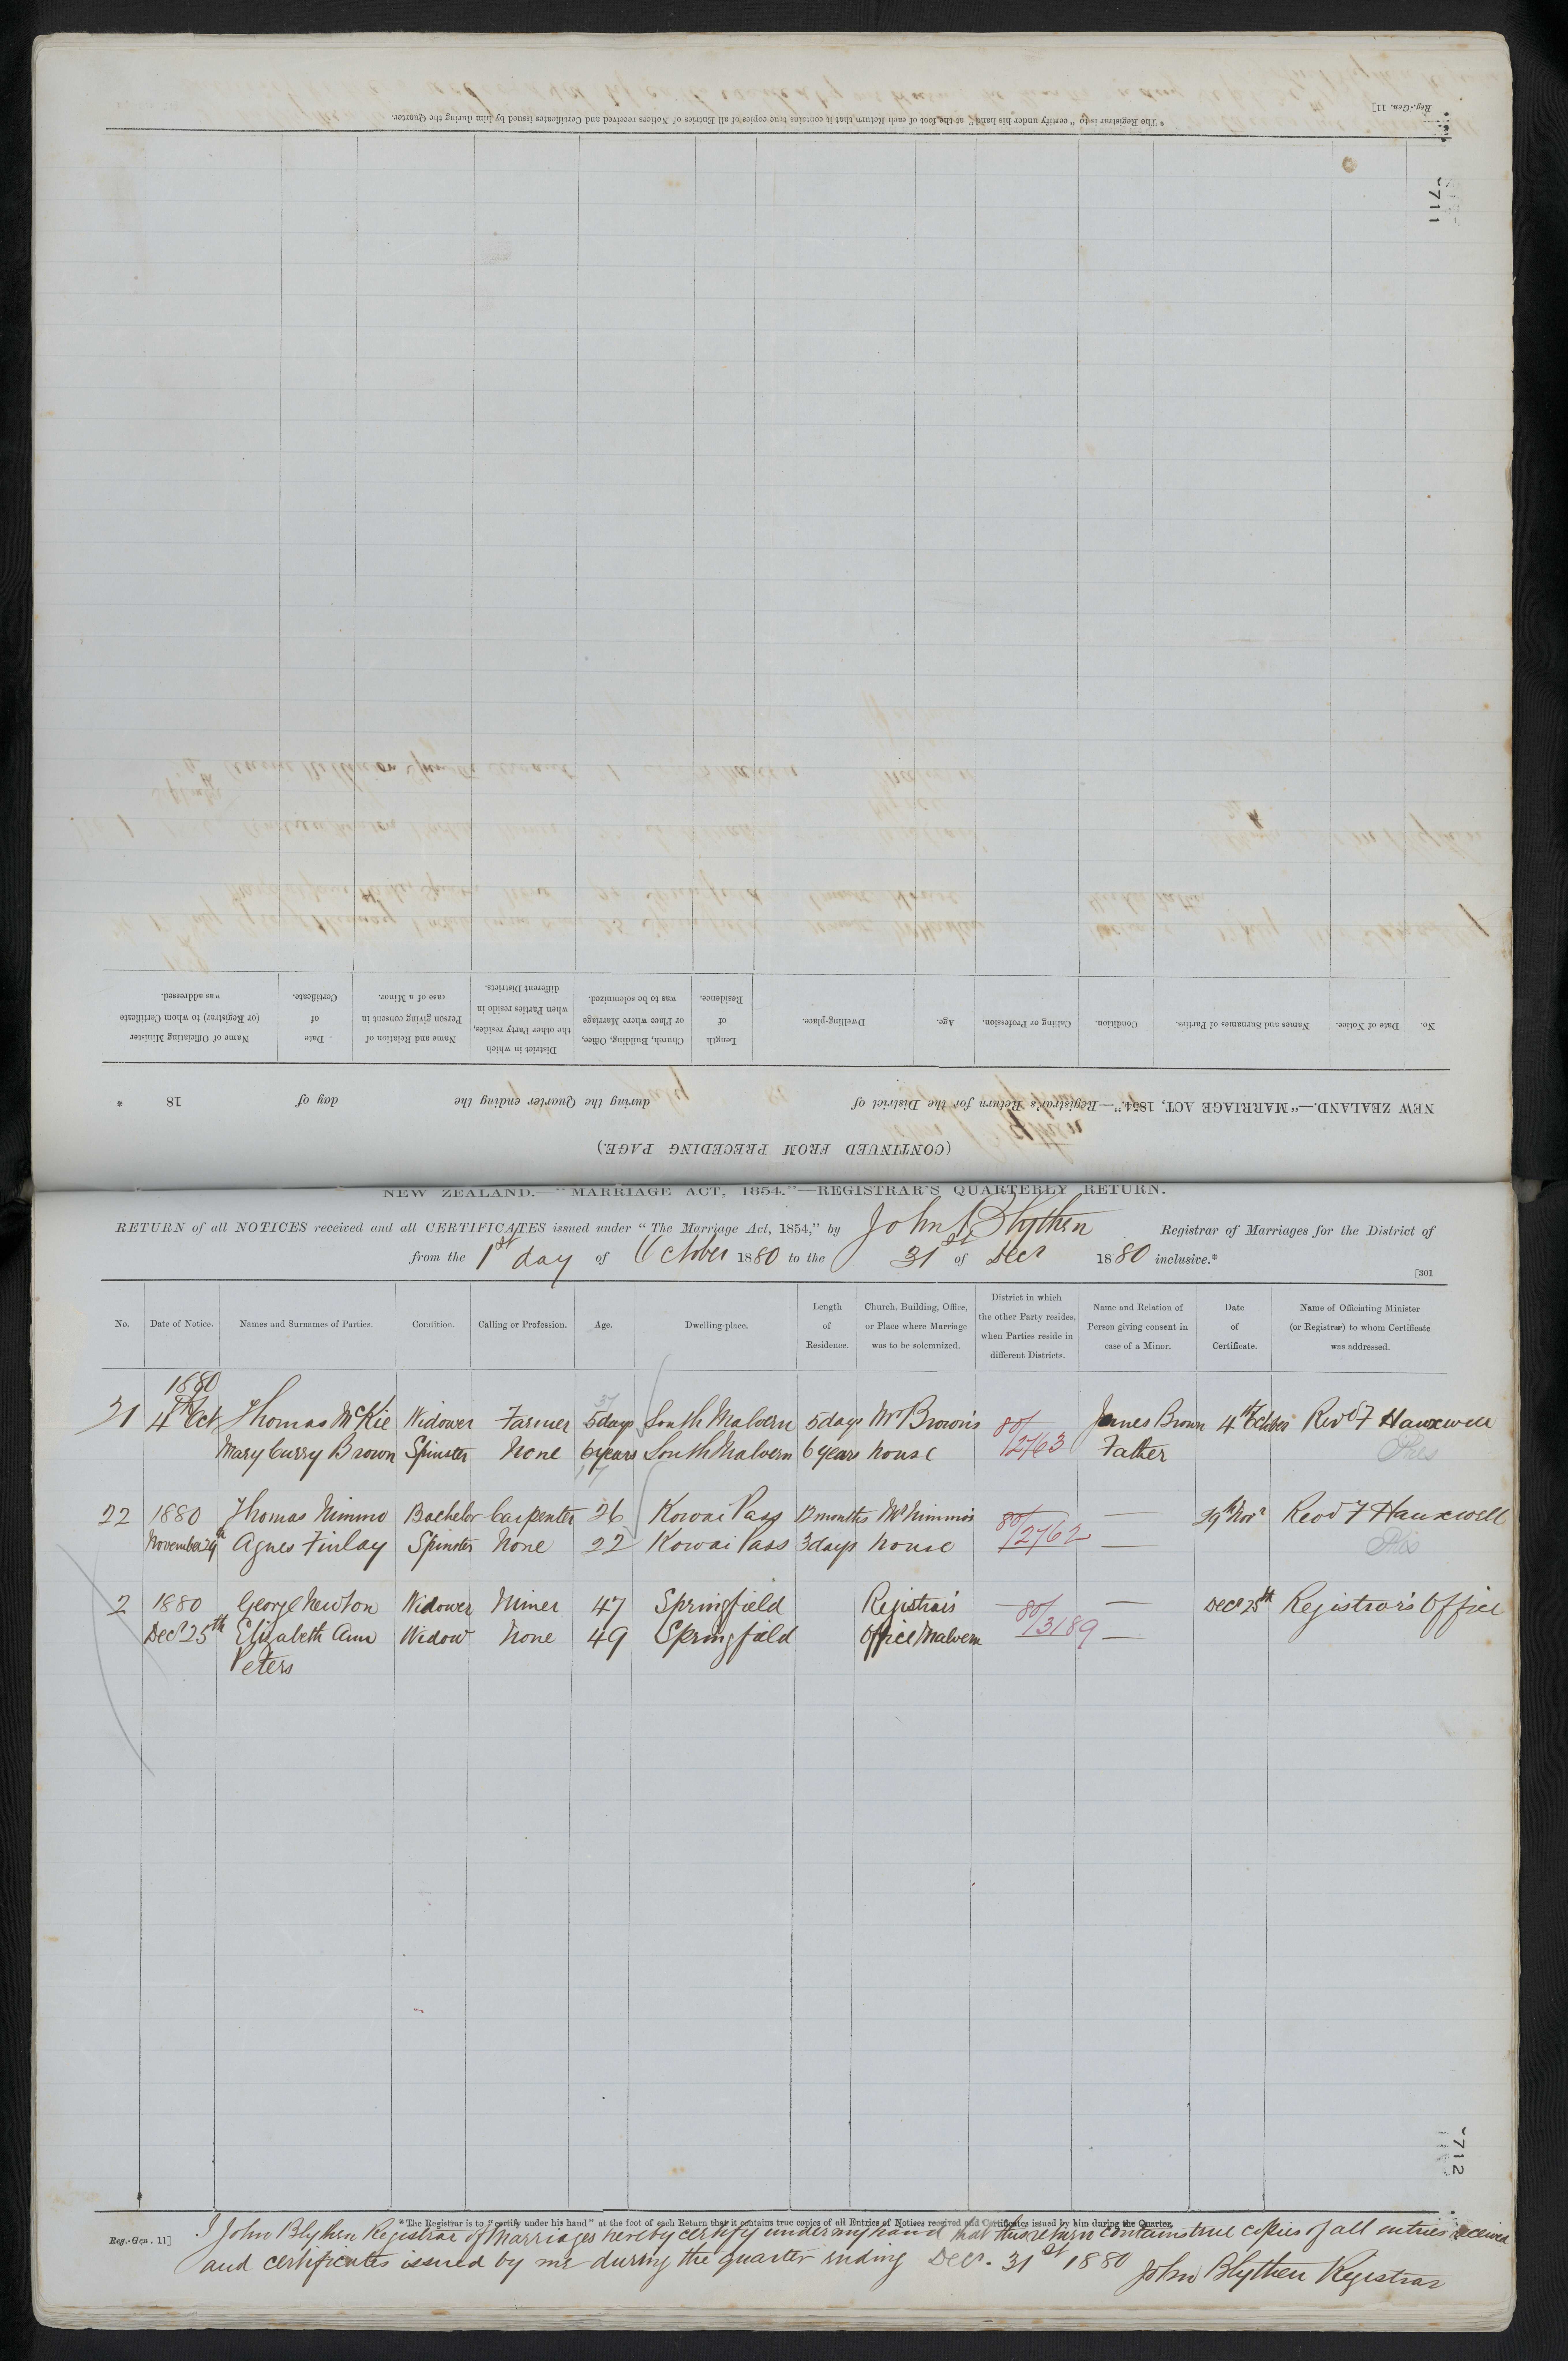 Reg.-Gen. 11]
* The Registrar is to "certify under his hand" at the foot of each Return that it contains true copies of all Entries of Notices received and Certificates issued by him during the Quarter.
711
No. Date of Notice. Names and Surnames of Parties. Condition. Calling or Profession. Age. Dwelling-place. Length of Residence. Church, Building, Office, or Place where Marriage was to be solemnized. District in which the other Party resides, when Parties reside in different Districts. Name and Relation of Person giving consent in case of a Minor. Date of Certificate. Name of Officiating Minister (or Registrar) to whom Certificate was addressed.
NEW ZEALAND.—"MARRIAGE ACT, 1854."—Registrar's Return for the District of during the Quarter ending the day of 18 *
(CONTINUED FROM PRECEDING PAGE.)
NEW ZEALAND.—"MARRIAGE ACT, 1854."—REGISTRAR'S QUARTERLY RETURN.
RETURN of all NOTICES received and all CERTIFICATES issued under "The Marriage Act, 1854," by John Blythen Registrar of Marriages for the District of
from the 1st day of October 1880 to the 31st of Decr 1880 inclusive.*
[301
No. Date of Notice. Names and Surnames of Parties. Condition. Calling or Profession. Age. Dwelling-place. Length of Residence. Church, Building, Office, or Place where Marriage was to be solemnized. District in which the other Party resides, when Parties reside in different Districts. Name and Relation of Person giving consent in case of a Minor. Date of Certificate. Name of Officiating Minister (or Registrar) to whom Certificate was addressed.
1880
21 4th Oct Thomas McKie Widower Farmer 37 5 days South Malvern 5 days Mr Brown's 80/ James Brown 4th October Revd F Hauxwell
Mary Curry Brown Spinster None 6 years 17 South Malvern 6 years house 2763 Father Pres
22 1880 Thomas Nimmo Bachelor Carpenter 26 Kowai Pass 12 months Mr Nimmo's 80/ — 29th Novr Revd F Hauxwell
November 29th Agnes Finlay Spinster None 22 Kowai Pass 3 days house 2762 — Pres
2 1880 George Newton Widower Miner 47 Springfield Registrar's — 80/ — Decr 25th Registrar's Office
Decr 25th Elizabeth Ann Widow None 49 Springfield Office Malvern 3189 —
Peters
712
* The Registrar is to "certify under his hand" at the foot of each Return that it contains true copies of all Entries of Notices received and Certificates issued by him during the Quarter.
Reg.-Gen. 11]
I John Blythen Registrar of Marriages hereby certify under my hand that this return contains true copies of all entries received
and certificates issued by me during the quarter ending Decr. 31st 1880 John Blythen Registrar